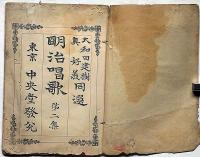 大和田建樹
奥好義同選
明治唱歌
第二集
東京 中央堂發兌